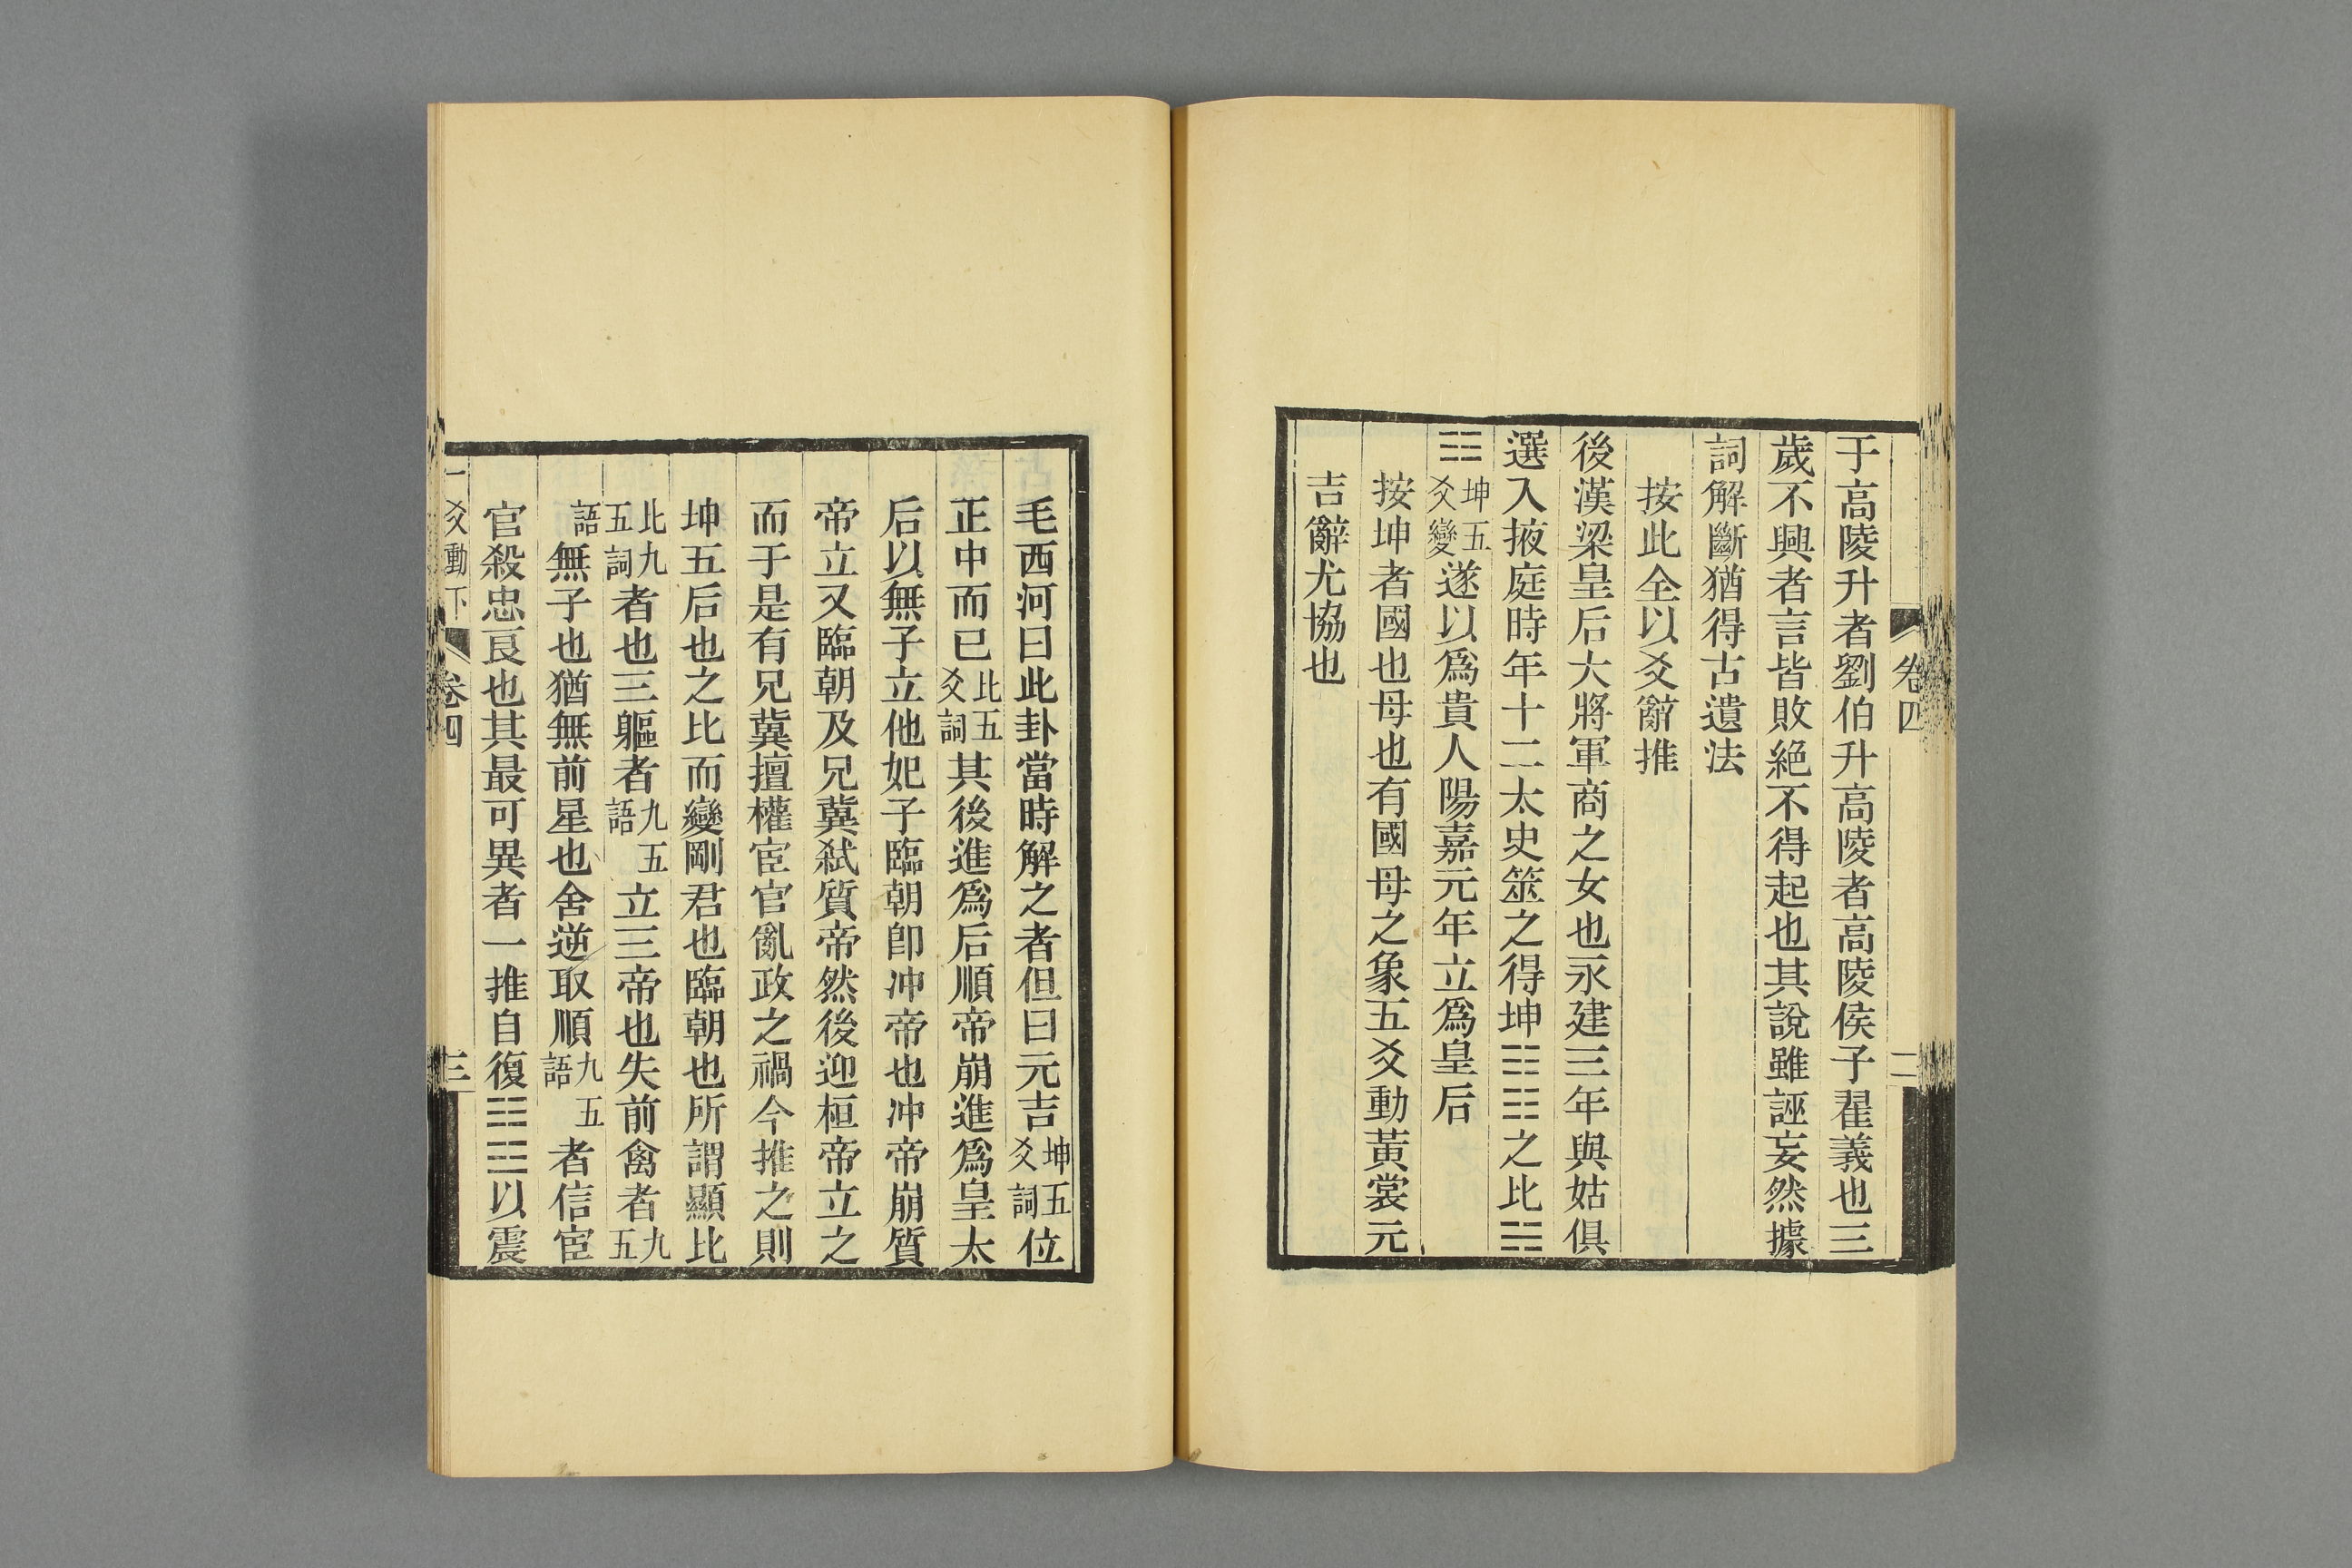 卷四
二
于高陵升者劉伯升高陵者高陵侯子翟義也三
歲不興者言皆敗絕不得起也其說雖誣妄然據
詞解斷猶得古遺法
按此全以爻辭推
後漢梁皇后大將軍商之女也永建三年與姑俱
選入掖庭時年十二太史筮之得坤☷☷之比☵
☷坤五爻變遂以爲貴人陽嘉元年立爲皇后
按坤者國也母也有國母之象五爻動黃裳元
吉辭尤協也
毛西河曰此卦當時解之者但曰元吉坤五爻詞位
正中而已比五爻詞其後進爲后順帝崩進爲皇太
后以無子立他妃子臨朝卽冲帝也冲帝崩質
帝立又臨朝及兄冀弑質帝然後迎桓帝立之
而于是有兄冀擅權宦官亂政之禍今推之則
坤五后也之比而變剛君也臨朝也所謂顯比
比九五詞者也三軀者九五語立三帝也失前禽者九五
語無子也猶無前星也舍逆取順九五語者信宦
官殺忠良也其最可異者一推自復☷☳以震
爻動下
卷四
三